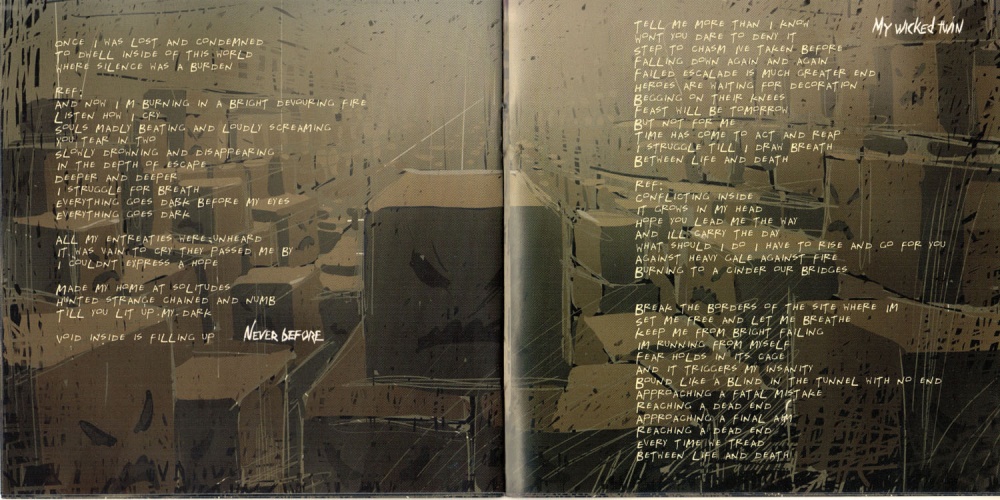 ONCE I WAS LOST AND CONDEMNED
TO DWELL INSIDE OF THIS WORLD
WHERE SILENCE WAS A BURDEN
REF:
AND NOW I M BURNING IN A BRIGHT DEVOURING FIRE
LISTEN HOW I CRY
SOULS MADLY BEATING AND LOUDLY SCREAMING
YOU TEAR IN TWO
SLOWLY DROWNING AND DISAPPEARING
IN THE DEPTH OF ESCAPE
DEEPER AND DEEPER
I STRUGGLE FOR BREATH
EVERYTHING GOES DARK BEFORE MY EYES
EVERYTHING GOES DARK
ALL MY ENTREATIES WERE UNHEARD
IT WAS VAIN TO CRY THEY PASSED ME BY
I COULDNT EXPRESS A HOPE
MADE MY HOME AT SOLITUDES
HUNTED STRANGE CHAINED AND NUMB
TILL YOU LIT UP MY DARK
VOID INSIDE IS FILLING UP
NEVER BEFORE
MY WICKED TWIN
TELL ME MORE THAN I KNOW
WONT YOU DARE TO DENY IT
STEP TO CHASM IVE TAKEN BEFORE
FALLING DOWN AGAIN AND AGAIN
FAILED ESCALADE IS MUCH GREATER END
HEROES ARE WAITING FOR DECORATION
BEGGING ON THEIR KNEES
FEAST WILL BE TOMORROW
BUT NOT FOR ME
TIME HAS COME TO ACT AND REAP
I STRUGGLE TILL I DRAW BREATH
BETWEEN LIFE AND DEATH
REF:
CONFLICTING INSIDE
IT GROWS IN MY HEAD
HOPE YOU LEAD ME THE WAY
AND ILL CARRY THE DAY
WHAT SHOULD I DO I HAVE TO RISE AND GO FOR YOU
AGAINST HEAVY GALE AGAINST FIRE
BURNING TO A CINDER OUR BRIDGES
BREAK THE BORDERS OF THE SITE WHERE IM
SET ME FREE AND LET ME BREATHE
KEEP ME FROM BRIGHT FAILING
IM RUNNING FROM MYSELF
FEAR HOLDS IN ITS CAGE
AND IT TRIGGERS MY INSANITY
BOUND LIKE A BLIND IN THE TUNNEL WITH NO END
APPROACHING A FATAL MISTAKE
REACHING A DEAD END
APPROACHING A FINAL AIM
REACHING A DEAD END
EVERY TIME WE TREAD
BETWEEN LIFE AND DEATH